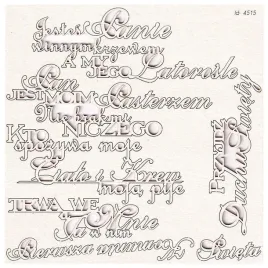 Id 4515
Jesteś Panie
winnym krzewem
A MY
JEGO Latorośle
Pan
JEST MOIM Pasterzem
Nie braknie
NICZEGO
KTO
spożywa moje
Ciało i Krew
moją pije
TRWA WE Mnie
Ja w nim
Pierwsza Komunia Święta
PRZYJDŹ
Duchu Święty